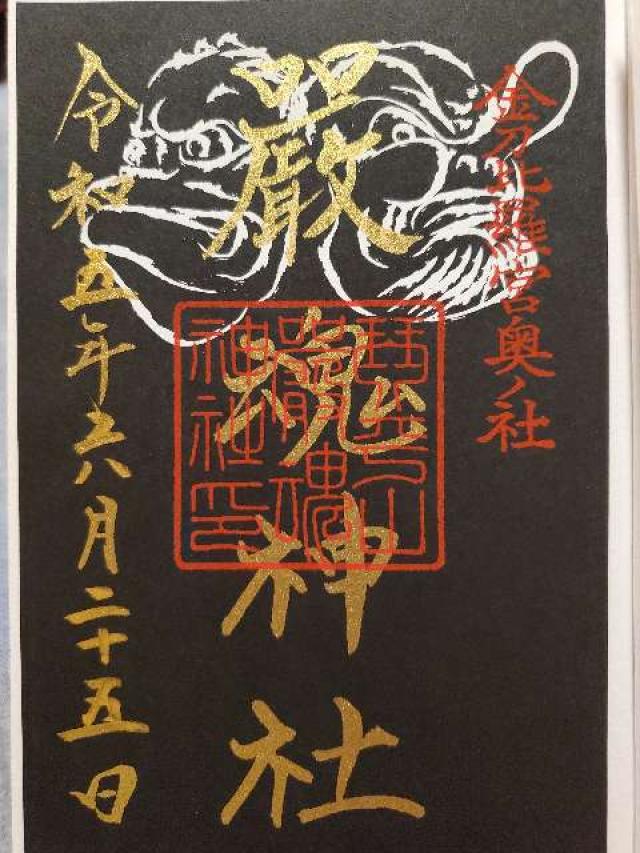 金刀比羅宮奥ノ社
嚴魂神社
琴平山
嚴魂
神社印
令和五年六月二十五日